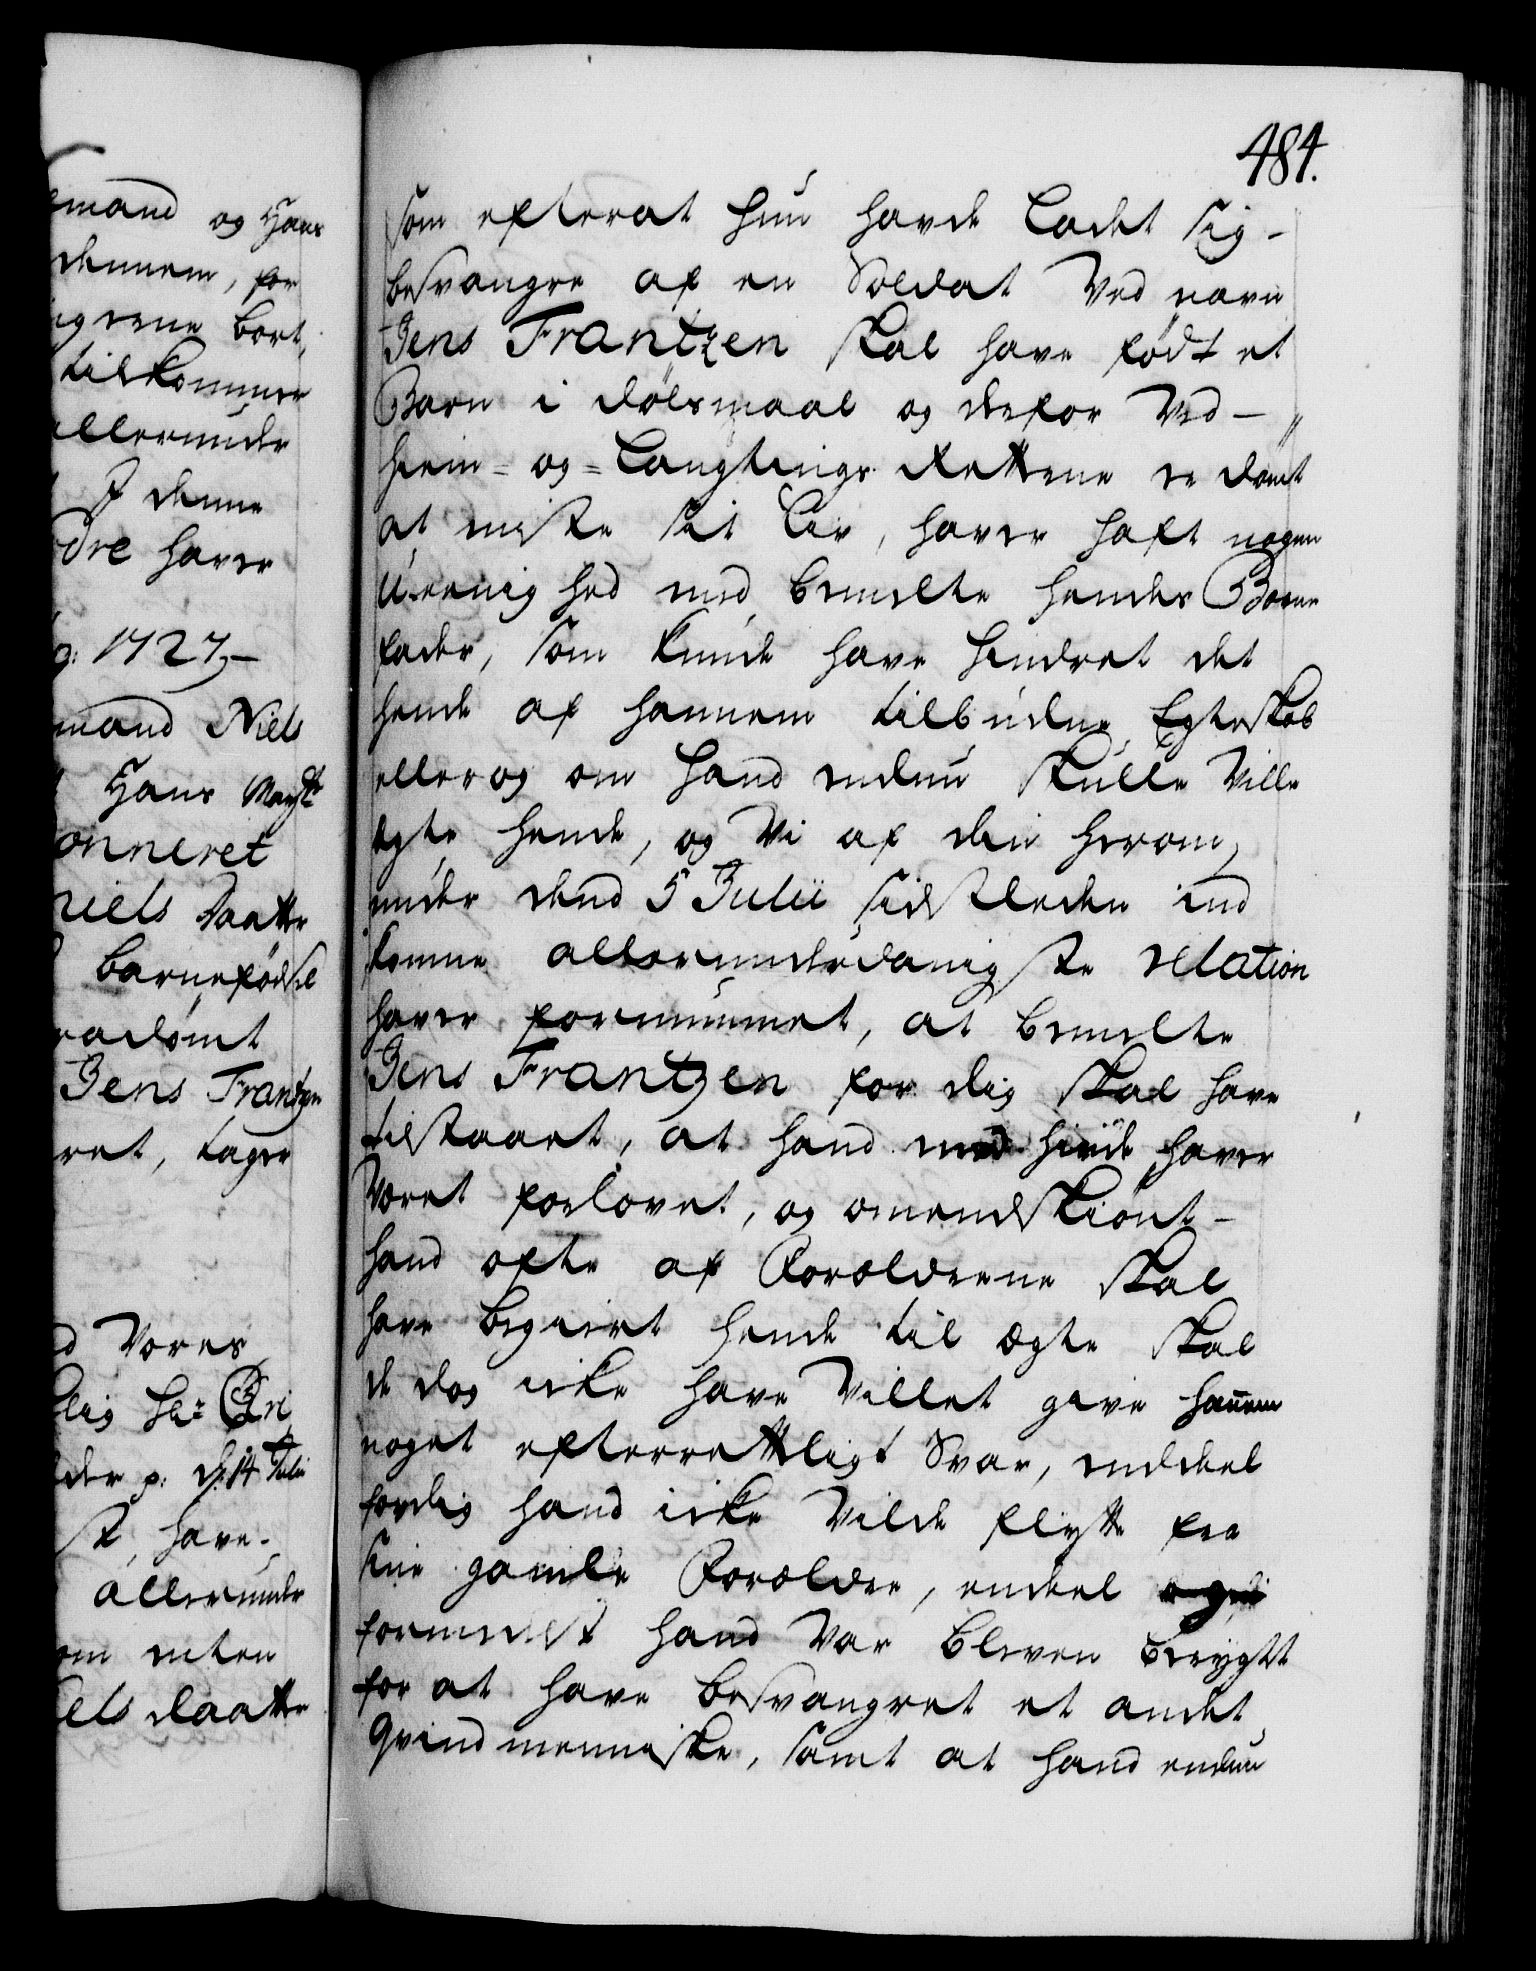 mand og Hans
dennem, for
bort,
tilkommer
allerunde
I denne
dre haver
1727,
mand Niels
Hans Maytt
onneret
niels daatter
barnefødsel
radømt
Jens Frantzen
ret, tager
Vores
p: d: 14 Julii
have
allerunde
om uden
iels daatter
484.
som efterat hun havde ladet sig
besvangre af en Soldat Ved navn
Jens Frantzen skal have født et
Barn i dølsmaal og derfor Ved
hiem- og Laugtings Retterne er dømt
at miste sit Liv, haver haft nogen
Ueenighed med bemelte hendes Barne
fader, som kunde have hindret det
hende af hannem tilbudne Egteskab
eller og om hand endnu skulle Ville
egte hende, og Vi af din herom,
under dend 5 Julii sidstleden ind
komne allerunderdanigste relation
haver fornummet, at bemelte
Jens Frantzen for dig skal have
tilstaaet, at hand med hende haver
Været forlovet, og omendskiønt
hand ofte af Forældrene skal
have begiert hende til ægte skal
de dog icke have Villet give hannem
noget efterrettligt Svar, endeel
fordi hand icke Vilde flytte fra
sine gamle Forældre, endeel
formedelst hand Var bleven berygtet
for at have besvangret et andet
Qvindmenniske, samt at hand endnu